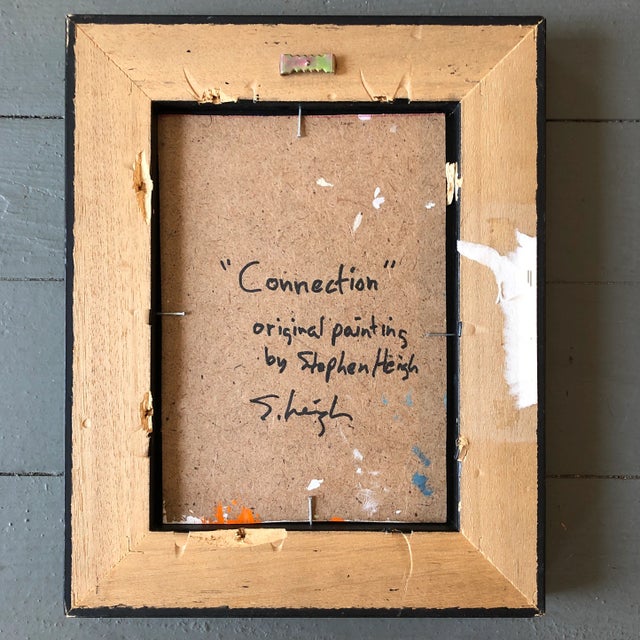 "Connection"
original painting
by Stephen Heigh
S. Heigh